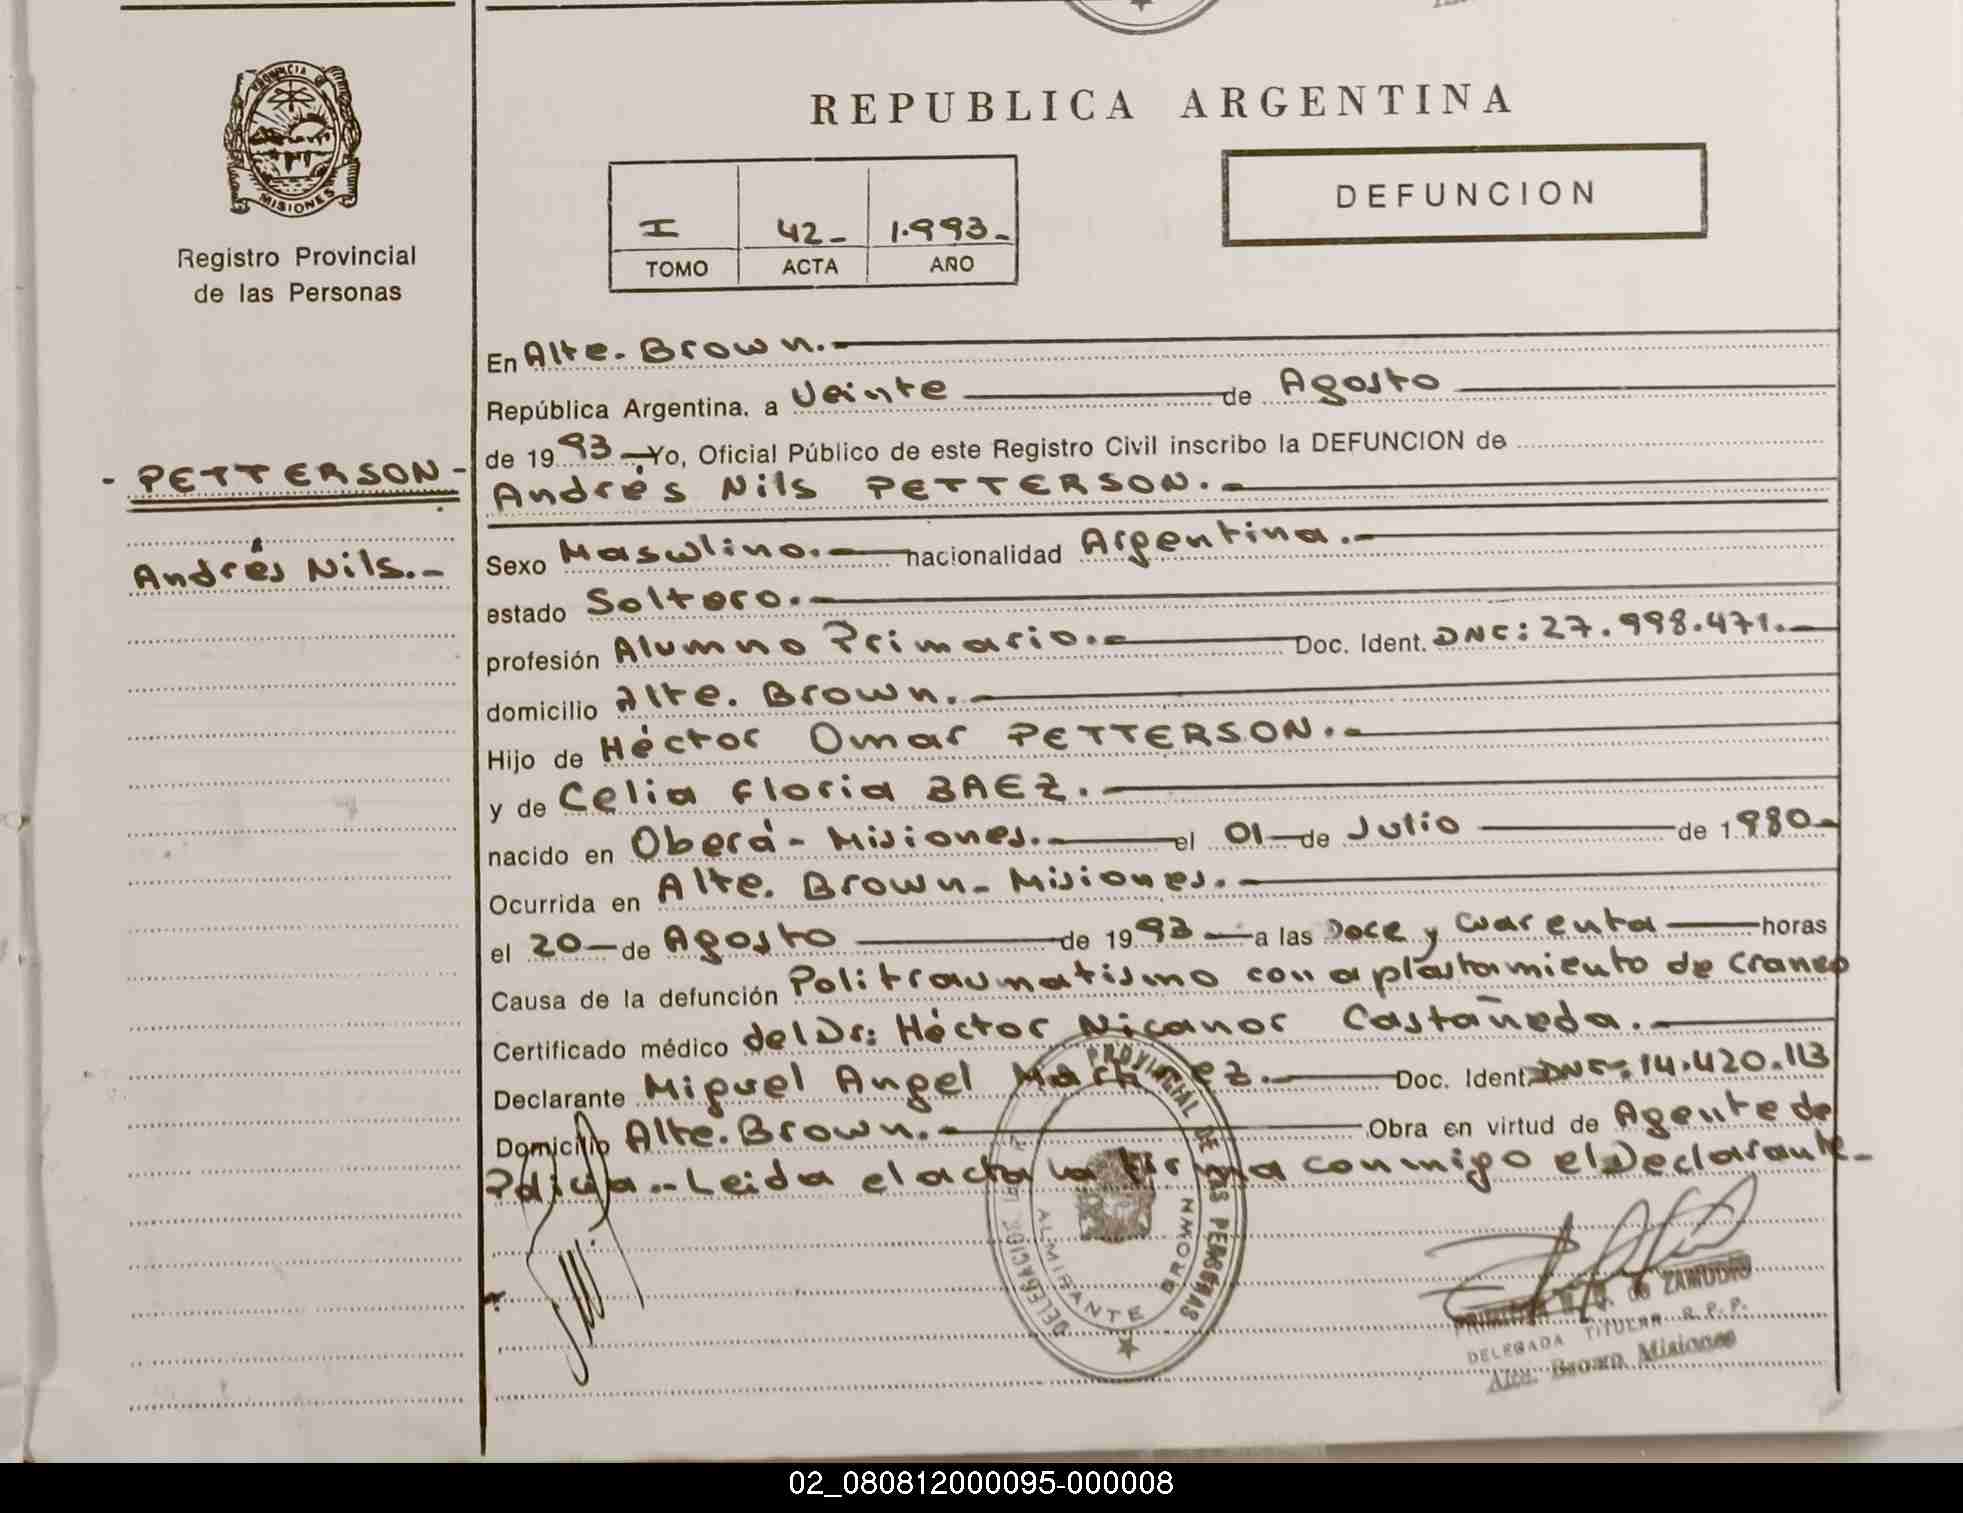 REPUBLICA ARGENTINA
PROVINCIA DE
MISIONES
Registro Provincial
de las Personas
I 42- 1.993-
TOMO ACTA AÑO
DEFUNCION
- PETTERSON -
Andrés Nils.-
En Alte. Brown.-
República Argentina, a Veinte de Agosto
de 1993, Yo, Oficial Público de este Registro Civil inscribo la DEFUNCION de
Andrés Nils PETTERSON.-
Sexo Masculino.- nacionalidad Argentina.-
estado Soltero.-
profesión Alumno Primario.- Doc. Ident. DNI: 27.998.471.-
domicilio Alte. Brown.-
Hijo de Héctor Omar PETTERSON.-
y de Celia Floria BAEZ.-
nacido en Oberá - Misiones.- el 01 de Julio de 1.980-
Ocurrida en Alte. Brown - Misiones.-
el 20 de Agosto de 1993 a las Doce y Cuarenta horas
Causa de la defunción Politraumatismo con aplastamiento de craneo
Certificado médico del Dr: Héctor Nicanor Castañeda.-
Declarante Miguel Angel Martinez.- Doc. Ident. DNI: 14.420.113
Domicilio Alte. Brown.- Obra en virtud de Agente de
Policia.- Leida el acta la firma conmigo el Declarante-
PROVINCIAL DE LAS PERSONAS
ALMIRANTE BROWN
de ZAMUDIO
DELEGADA TITULAR R.P.P.
Alte. Brown Misiones
02_080812000095-000008